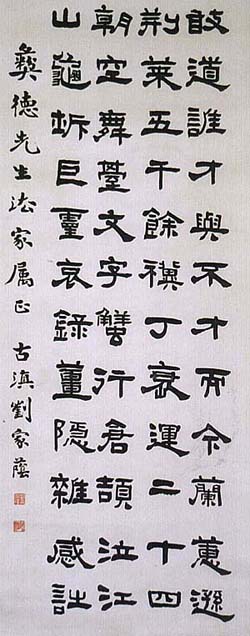 敢道誰才與不才而今蘭蕙遜
荆萊五千餘禩丁衰運二十四
朝空舞臺文字蟹行倉頡泣江
山龜坼巨靈哀錄董隱雜感詩
彝德先生法家属正 古滇劉家蔭